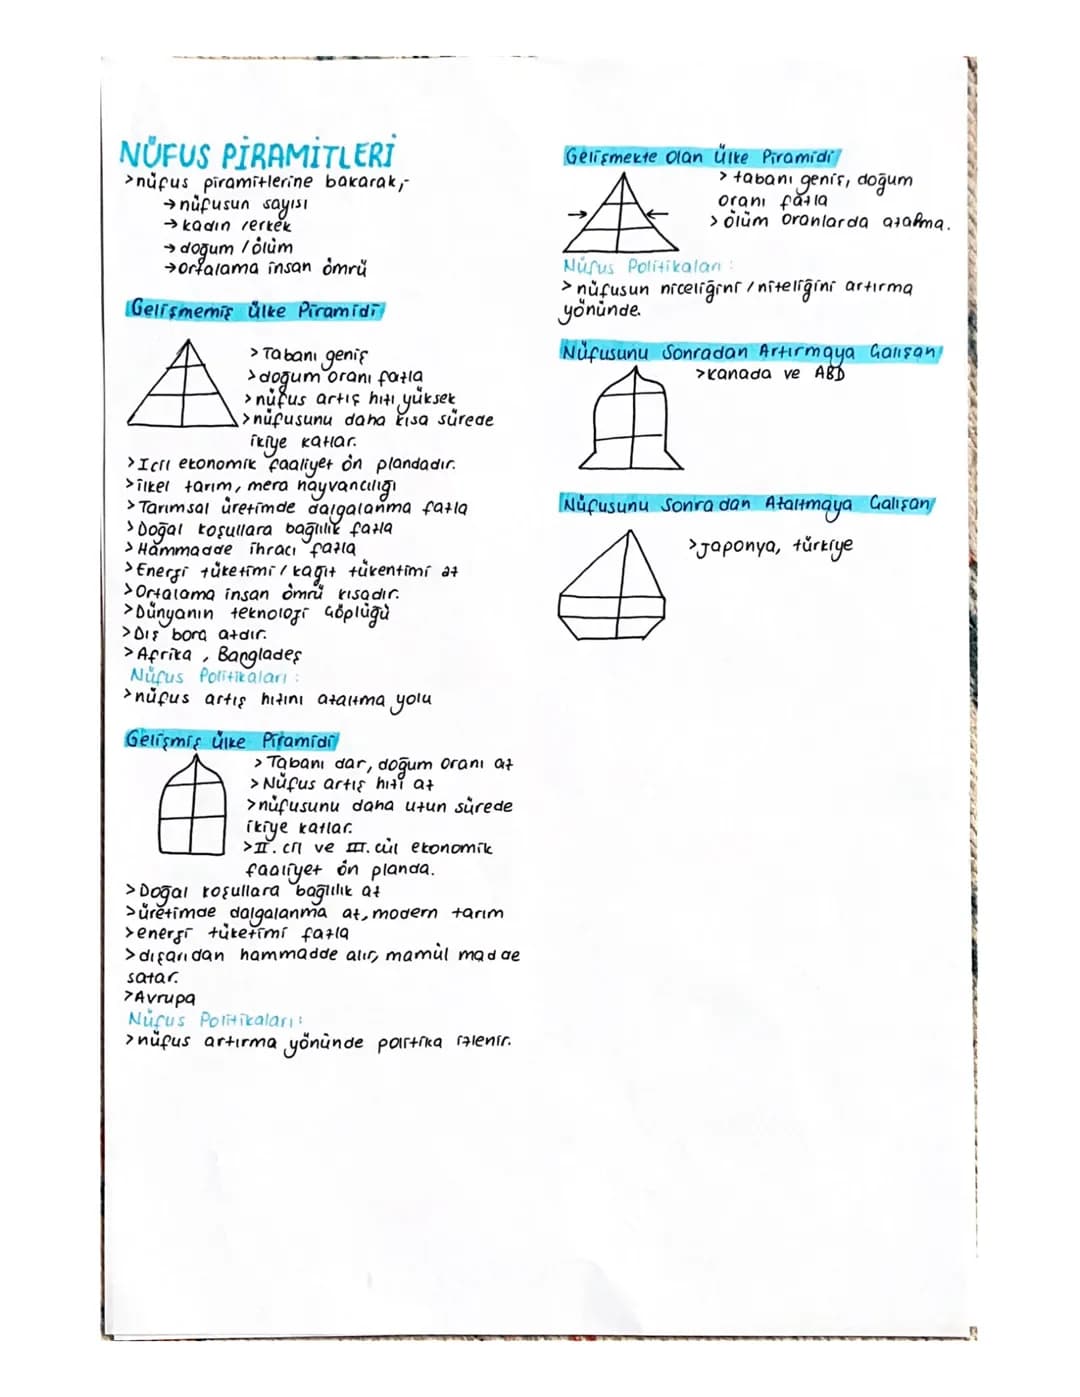 NÜFUS PİRAMİTLERİ
>nüfus piramitlerine bakarak,-
→nüfusun sayısı
→kadın /erkek
→doğum / ölüm
→ortalama insan ömrü
Gelişmemiş ülke Piramidi
> Tabanı geniş
>doğum oranı fazla
>nüfus artış hızı yüksek
>nüfusunu daha kısa sürede
ikiye katlar.
>I.cil ekonomik faaliyet ön plandadır.
>ilkel tarım, mera hayvancılığı
>Tarımsal üretimde dalgalanma fazla
>Doğal koşullara bağlılık fazla
>Hammadde ihracı fazla
>Enerji tüketimi / kağıt tükentimi az
>Ortalama insan ömrü kısadır.
>Dünyanın teknoloji Çöplüğü
>Dış bora azdır.
>Afrika , Bangladeş
Nüfus Politikaları :
>nüfus artış hızını azaltma yolu
Gelişmiş ülke Piramidi
> Tabanı dar, doğum oranı az
>Nüfus artış hızı az
>nüfusunu daha uzun sürede
ikiye katlar.
>II. cil ve III. cül ekonomik
faaliyet ön planda.
>Doğal koşullara bağlılık az
>üretimde dalgalanma az, modern tarım
>enerji tüketimi fazla
>dışarıdan hammadde alır, mamül madde
satar.
>Avrupa
Nüfus Politikaları:
>nüfus artırma yönünde politika izlenir.
Gelişmekte Olan Ülke Piramidi
> tabanı geniş, doğum
oranı fazla
> ölüm oranlarda azalma.
Nüfus Politikaları :
>nüfusun niceliğini / niteliğini artırma
yönünde.
Nüfusunu Sonradan Artırmaya Çalışan
>Kanada ve ABD
Nüfusunu Sonradan Azaltmaya Çalışan
>Japonya, türkiye